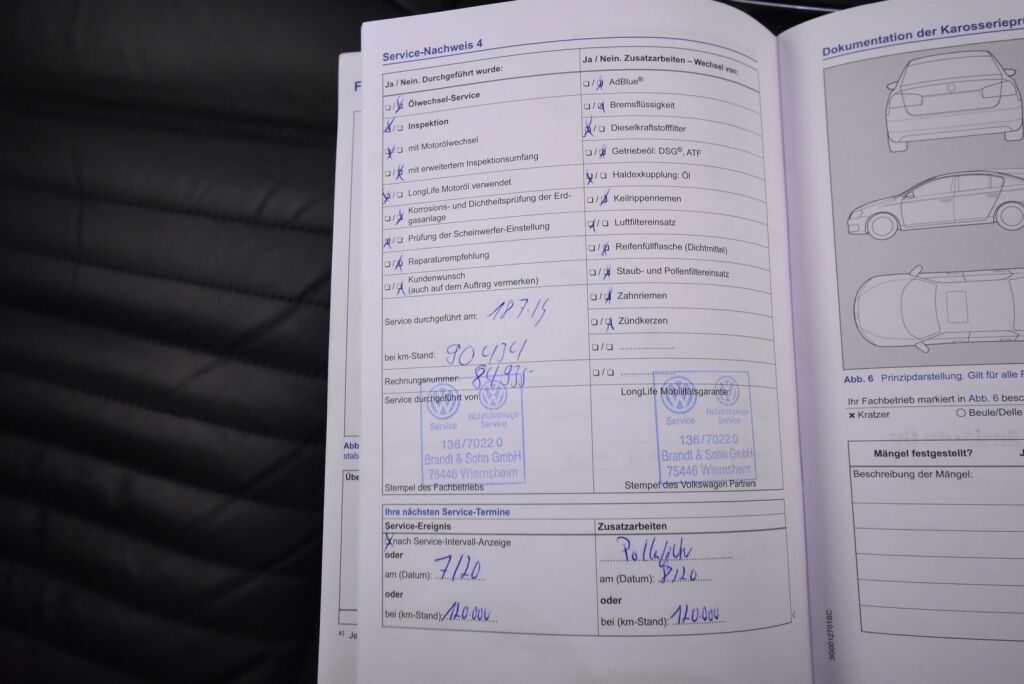 Service-Nachweis 4
Ja / Nein. Durchgeführt wurde:
❑ / ❑ Ölwechsel-Service
❑ / ❑ Inspektion
❑ / ❑ mit Motorölwechsel
❑ / ❑ mit erweitertem Inspektionsumfang
❑ / ❑ LongLife Motoröl verwendet
❑ / ❑ Korrosions- und Dichtheitsprüfung der Erd-
gasanlage
❑ / ❑ Prüfung der Scheinwerfer-Einstellung
❑ / ❑ Reparaturempfehlung
❑ / ❑ Kundenwunsch
(auch auf dem Auftrag vermerken)
Service durchgeführt am: 18.7.19
bei km-Stand: 90434
Rechnungsnummer: 84935
Service durchgeführt von:
Service
Nutzfahrzeuge
Service
136/7022 0
Brandt & Sohn GmbH
75446 Wiernsheim
Stempel des Fachbetriebs
Ja / Nein. Zusatzarbeiten – Wechsel von:
❑ / ❑ AdBlue®
❑ / ❑ Bremsflüssigkeit
❑ / ❑ Dieselkraftstofffilter
❑ / ❑ Getriebeöl: DSG®, ATF
❑ / ❑ Haldexkupplung: Öl
❑ / ❑ Keilrippenriemen
❑ / ❑ Luftfiltereinsatz
❑ / ❑ Reifenfüllflasche (Dichtmittel)
❑ / ❑ Staub- und Pollenfiltereinsatz
❑ / ❑ Zahnriemen
❑ / ❑ Zündkerzen
❑ / ❑ ......................
❑ / ❑ ......................
LongLife Mobilitätsgarantie:
Service
Nutzfahrzeuge
Service
136/7022 0
Brandt & Sohn GmbH
75446 Wiernsheim
Stempel des Volkswagen Partners
Ihre nächsten Service-Termine
Service-Ereignis
nach Service-Intervall-Anzeige
oder
am (Datum): 7/20
oder
bei (km-Stand): 120.000
Zusatzarbeiten
am (Datum): 8/20
oder
bei (km-Stand): 120.000
Dokumentation der
Abb. 6 Prinzipdarstellung. Gilt für alle
Ihr Fachbetrieb markiert in Abb. 6
× Kratzer
○ Beule/Delle
Mängel festgestellt?
Beschreibung der Mängel:
3G0012701SC
Abb
a) Je